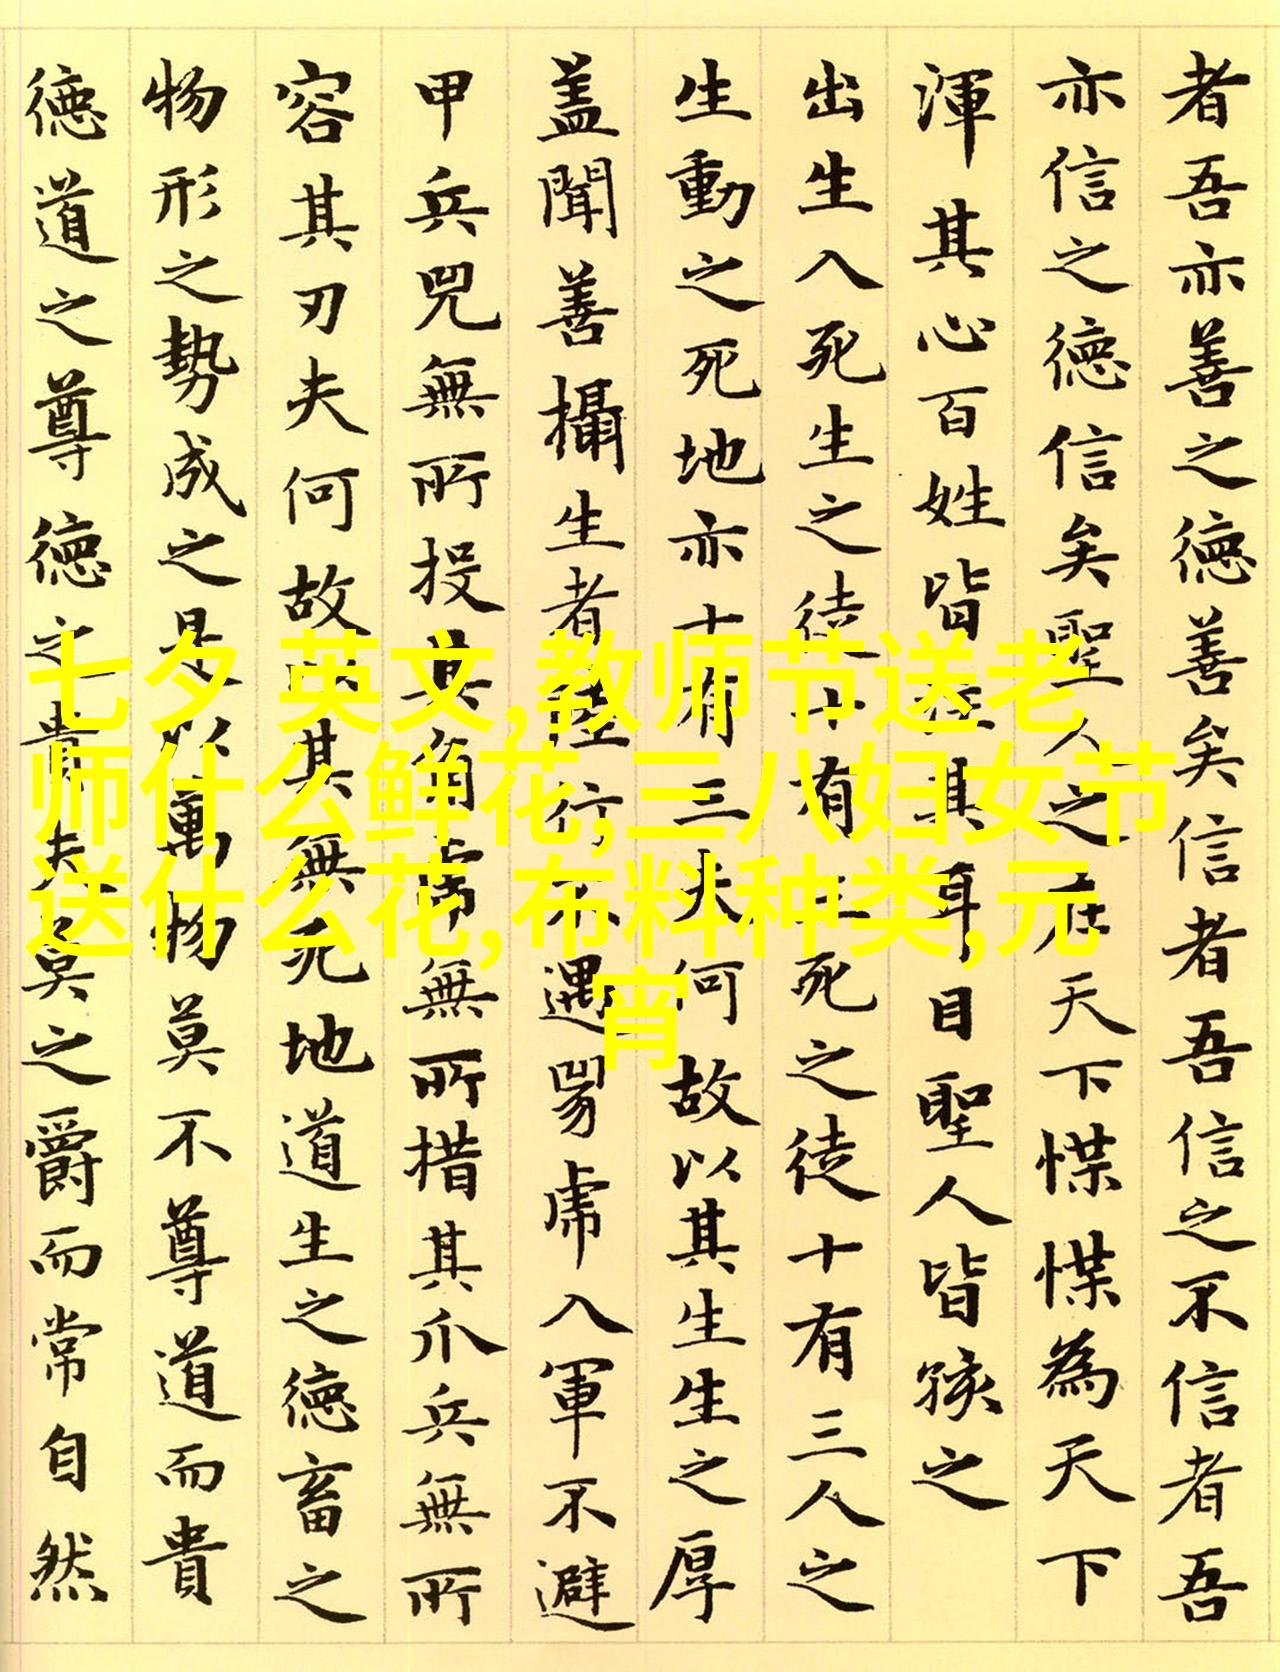 者吾亦善之德善矣信者吾信之不信者吾
亦信之德信矣聖人之在天下惵惵為天下
渾其心百姓皆注其耳目聖人皆孩之
出生入死生之徒十有三死之徒十有三人之
生動之死地亦十有三夫何故以其生生之厚
盖聞善攝生者陸行不遇兕虎入軍不避
甲兵兕無所投其角虎無所措其爪兵無所
容其刃夫何故以其無死地道生之德畜之
物形之勢成之是以萬物莫不尊道而貴
德道之尊德之貴夫莫之爵而常自然
七夕 英文,教师节送老
师什么鲜花,三八妇女节
送什么花,布料种类,元
宵